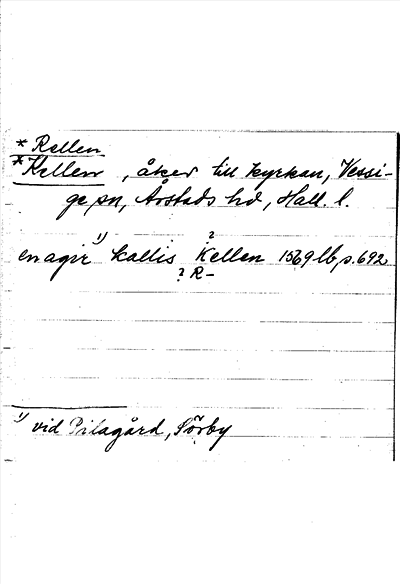 * Rellen
* Kellen, åker till kyrkan, Vessi-
ge sn, Årstads hd, Hall. l.
?
en agir 1) kallis Kellen 1569 lb, s. 692
? R-
1) vid Pilagård, Sörby